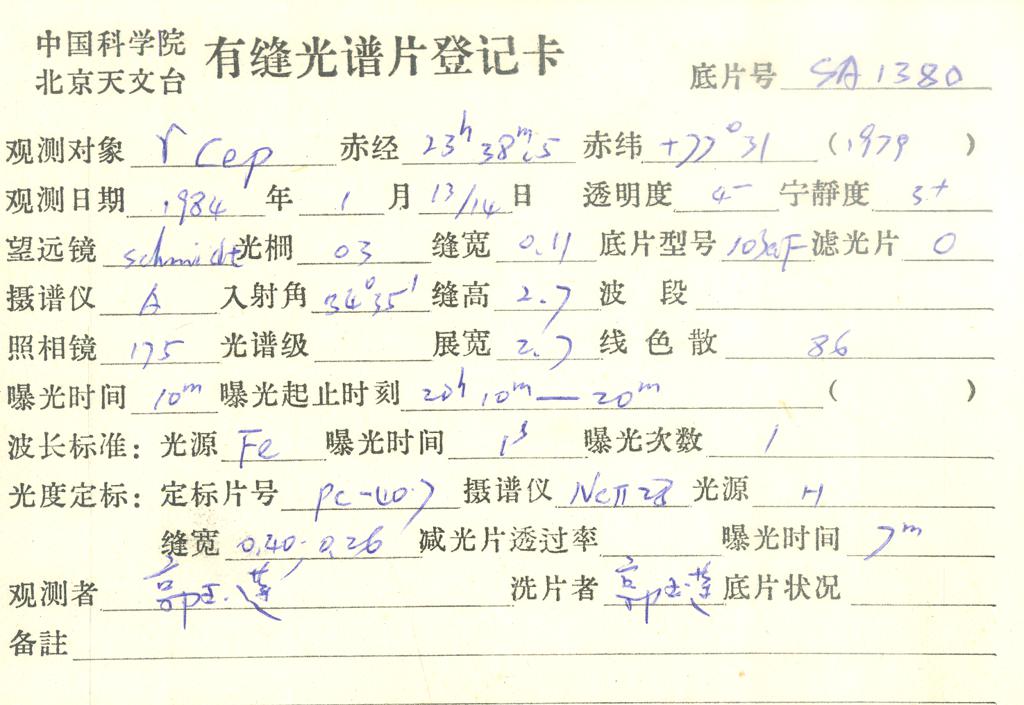 中国科学院
北京天文台
有缝光谱片登记卡
底片号 SA1380
观测对象 γ Cep 赤经 23h 38m.5 赤纬 +77°31 (1979)
观测日期 1984 年 1 月 13/14 日 透明度 4- 宁静度 3+
望远镜 schmidt 光栅 03 缝宽 0.11 底片型号 103aF 滤光片 0
摄谱仪 A 入射角 34°35' 缝高 2.7 波段
照相镜 175 光谱级 展宽 2.7 线色散 86
曝光时间 10m 曝光起止时刻 20h 10m — 20m ( )
波长标准: 光源 Fe 曝光时间 1s 曝光次数 1
光度定标: 定标片号 PC-407 摄谱仪 光源 H
缝宽 0.40, 0.26 减光片透过率 曝光时间 7m
观测者 郭玉莲 洗片者 郭玉莲 底片状况
备註